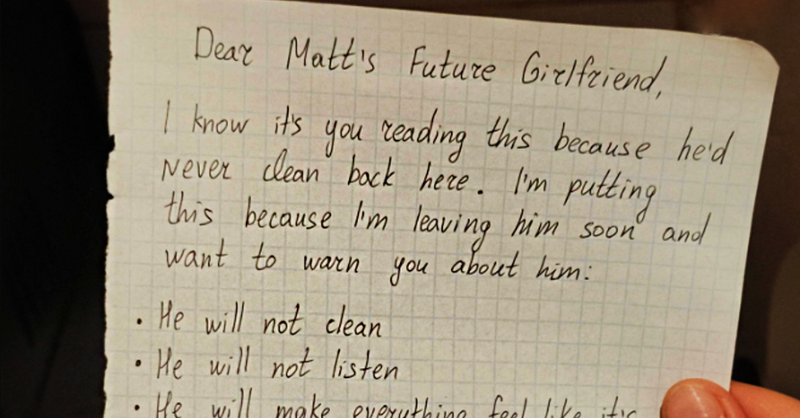 Dear Matt's Future Girlfriend,
I know it's you reading this because he'd
never clean back here. I'm putting
this because I'm leaving him soon and
want to warn you about him:
• He will not clean
• He will not listen
• He will make everything feel like it's